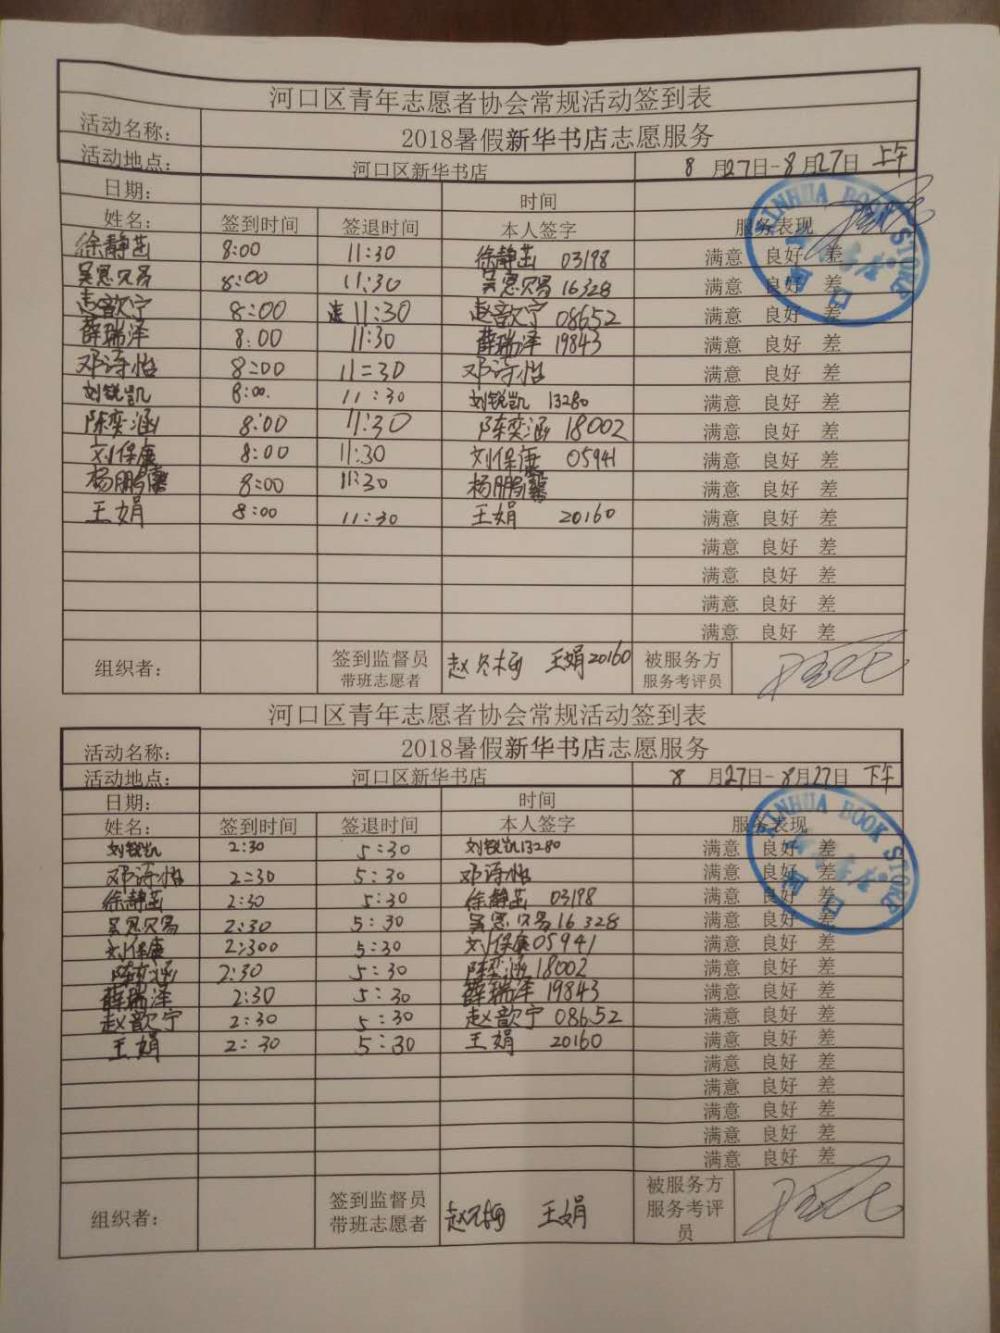 河口区青年志愿者协会常规活动签到表
活动名称: 2018暑假新华书店志愿服务
活动地点: 河口区新华书店 8 月27日-8月27日 上午
日期: 时间
姓名: 签到时间 签退时间 本人签字 服务表现
徐静茁 8:00 11:30 徐静茁 03198 满意 良好 差
吴思贝易 8:00 11:30 吴思贝易 16328 满意 良好 差
赵歆宁 8:00 11:30 赵歆宁 08652 满意 良好 差
薛瑞泽 8:00 11:30 薛瑞泽 19843 满意 良好 差
邓诗怡 8:00 11:30 邓诗怡 满意 良好 差
刘锐凯 8:00. 11:30 刘锐凯 13280 满意 良好 差
陈奕涵 8:00 11:30 陈奕涵 18002 满意 良好 差
刘保康 8:00 11:30 刘保康 05941 满意 良好 差
杨鹏 8:00 11:30 杨鹏 满意 良好 差
王娟 8:00 11:30 王娟 20160 满意 良好 差
满意 良好 差
满意 良好 差
满意 良好 差
满意 良好 差
组织者: 签到监督员 带班志愿者 赵 王娟20160 被服务方 服务考评员
河口区青年志愿者协会常规活动签到表
活动名称: 2018暑假新华书店志愿服务
活动地点: 河口区新华书店 8 月27日-8月27日 下午
日期: 时间
姓名: 签到时间 签退时间 本人签字 服务表现
刘锐凯 2:30 5:30 刘锐凯13280 满意 良好 差
邓诗怡 2:30 5:30 邓诗怡 满意 良好 差
徐静茁 2:30 5:30 徐静茁 03198 满意 良好 差
吴思贝易 2:30 5:30 吴思贝易 16328 满意 良好 差
刘保康 2:300 5:30 刘保康05941 满意 良好 差
陈奕涵 2:30 5:30 陈奕涵 18002 满意 良好 差
薛瑞泽 2:30 5:30 薛瑞泽 19843 满意 良好 差
赵歆宁 2:30 5:30 赵歆宁 08652 满意 良好 差
王娟 2:30 5:30 王娟 20160 满意 良好 差
满意 良好 差
满意 良好 差
满意 良好 差
满意 良好 差
满意 良好 差
组织者: 签到监督员 带班志愿者 赵 王娟 被服务方 服务考评员
XINHUA BOOK STORE
河口
XINHUA BOOK STORE
河口